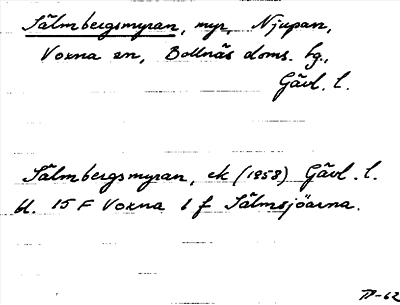 Sälmbergsmyran, myr, Njupan,
Voxna sn, Bollnäs doms. hg.,
Gävl. l.
Sälmbergsmyran, ek (1958) Gävl. l.
bl. 15 F Voxna 1 f Sälmsjöarna.
-62